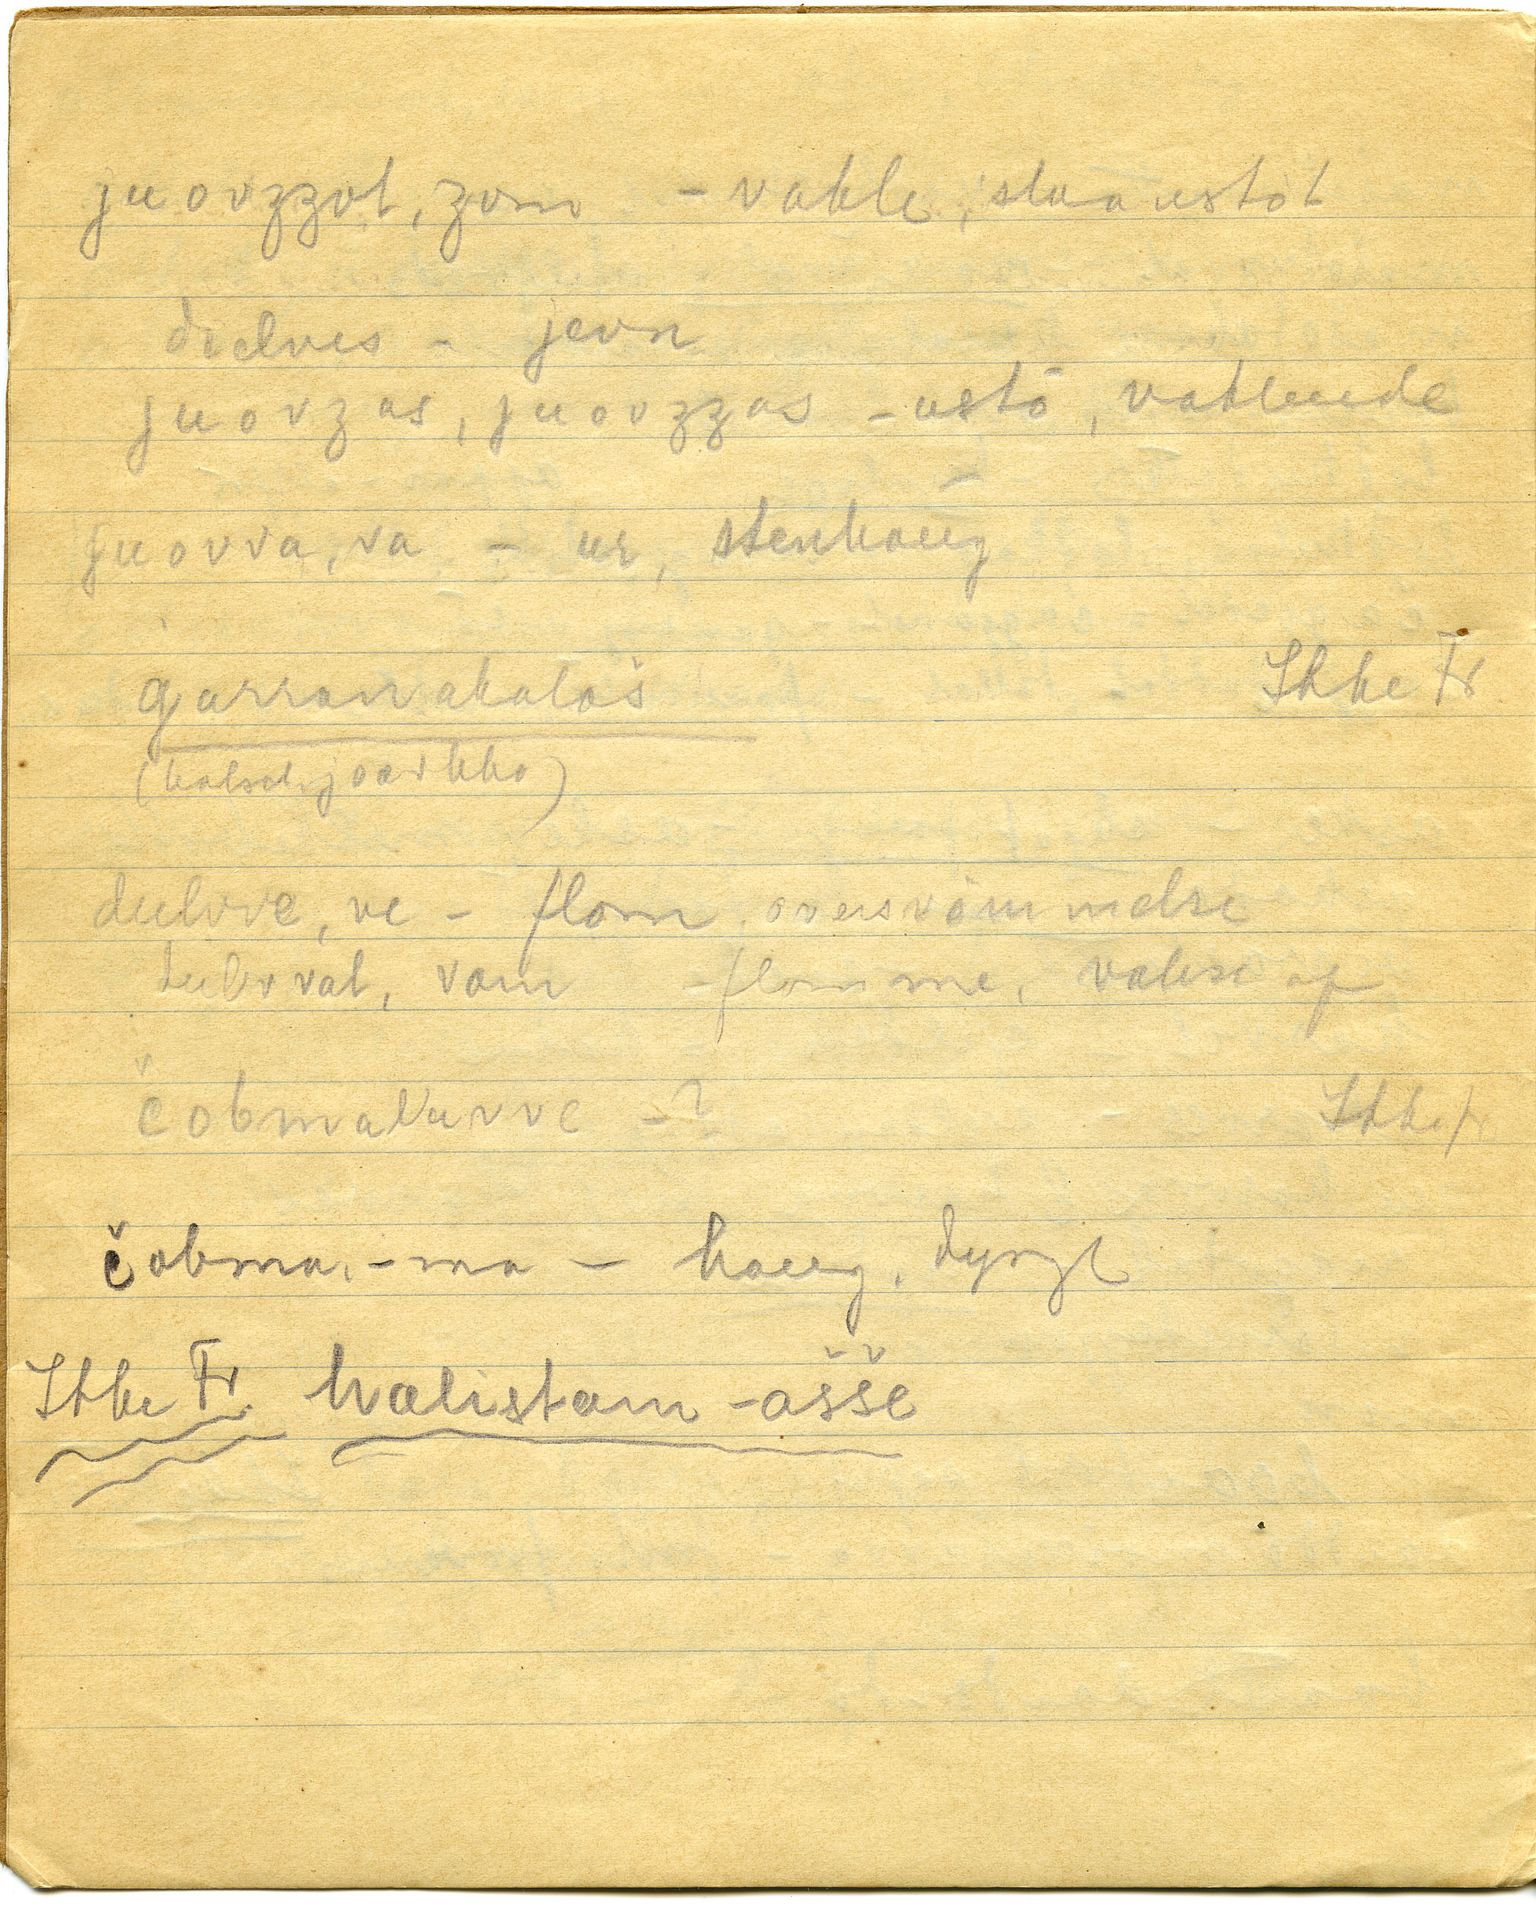 juovzzot, zom - vakle, staa ustöt
dielves - jevn
juovzas, juovzzas - ustö, vaklende
juovva, va - ur, stenhaug
garranakalaš Ikke Fr
(kalsel. joavkko)
dulvve, ve - flom, oversvömmelse
dulvvat, vam - flomme, vokse op
čobmaluvve - ? Ikke Fr
čobma, -ma - haug, dynge
Ikke Fr. hvalistam - ašše